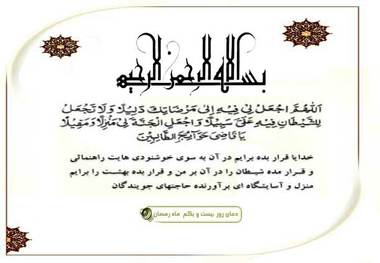 بسم الله الرحمن الرحیم
اَللّهُمَّ اجْعَلْ لى فيهِ اِلى مَرْضاتِكَ دَليلاً وَلا تَجْعَلْ
لِلشَّيْطانِ فيهِ عَلَىَّ سَبيلاً وَاجْعَلِ الْجَنَّةَ لى مَنْزِلاً وَمَقيلاً
يا قاضِىَ حَوآئِجِ الطّالِبينَ
خدایا قرار بده برایم در آن به سوی خوشنودی هایت راهنمائی
و قرار مده شیطان را در آن بر من و قرار بده بهشت را برایم
منزل و آسایشگاه ای برآورنده حاجتهای جویندگان
دعای روز بیست و یکم ماه رمضان